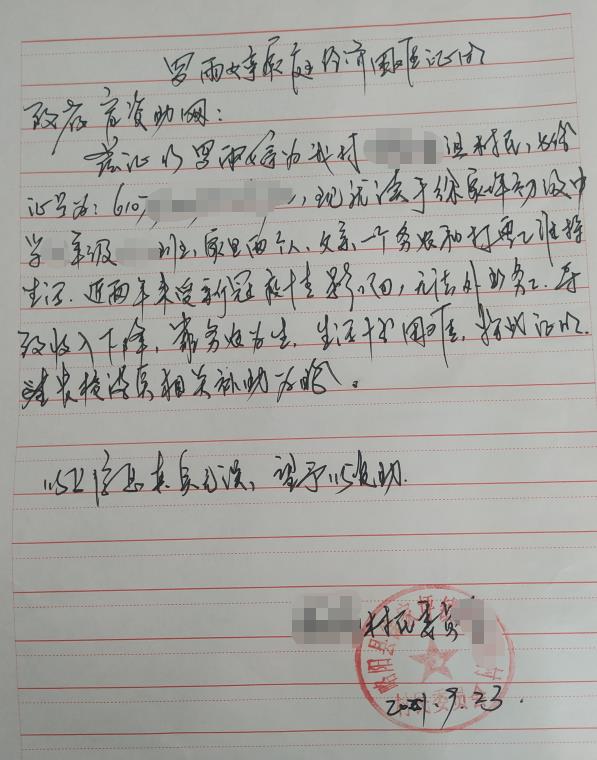 罗雨婷家庭经济困难证明
致教育资助网:
兹证明罗雨婷为我村 组村民,身份
证号为:610 ,现就读于徐家坪初级中
学 年级 班,家里两个人,父亲一个务农和打零工维持
生活.近两年来受新冠疫情影响,无法外出务工.导
致收入下降,靠务农为生,生活十分困难,特此证明.
请贵校落实相关补助为盼。
以上信息真实无误,望予以资助.
村民委员
略阳县 家坪 村
村民委员会
2021.9.23.